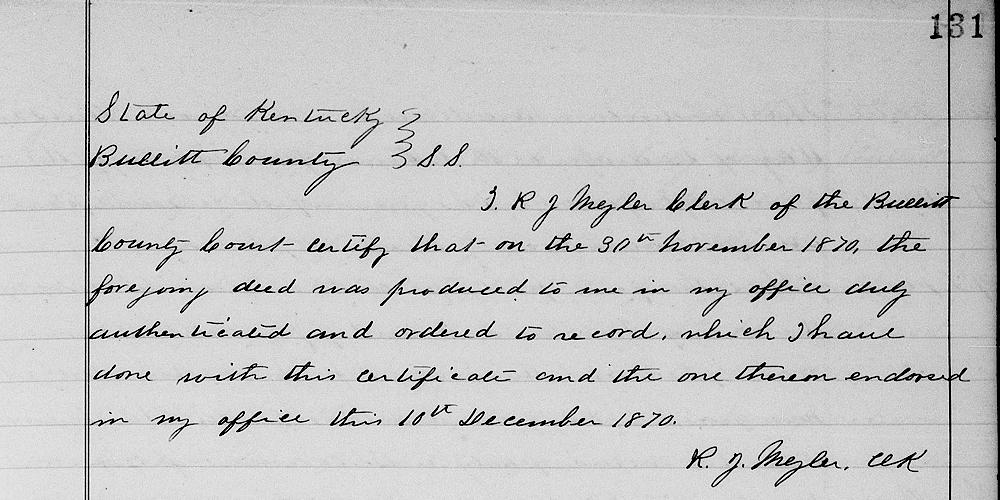 131
State of Kentucky
Bullitt County } S.S.
I. R J Meyler Clerk of the Bullitt
County Court certify that on the 30th November 1870, the
foregoing deed was produced to me in my office duly
authenticated and ordered to record, which I have
done with this certificate and the one thereon endorsed
in my office this 10th December 1870.
R. J. Meyler. Clk